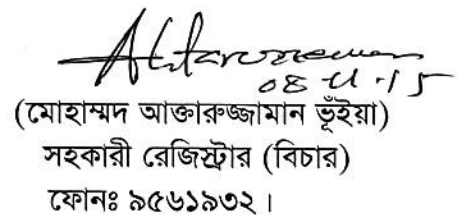 08-11-15
(মোহাম্মদ আক্তারুজ্জামান ভূঁইয়া)
সহকারী রেজিস্ট্রার (বিচার)
ফোনঃ ৯৫৬১৯৩২।